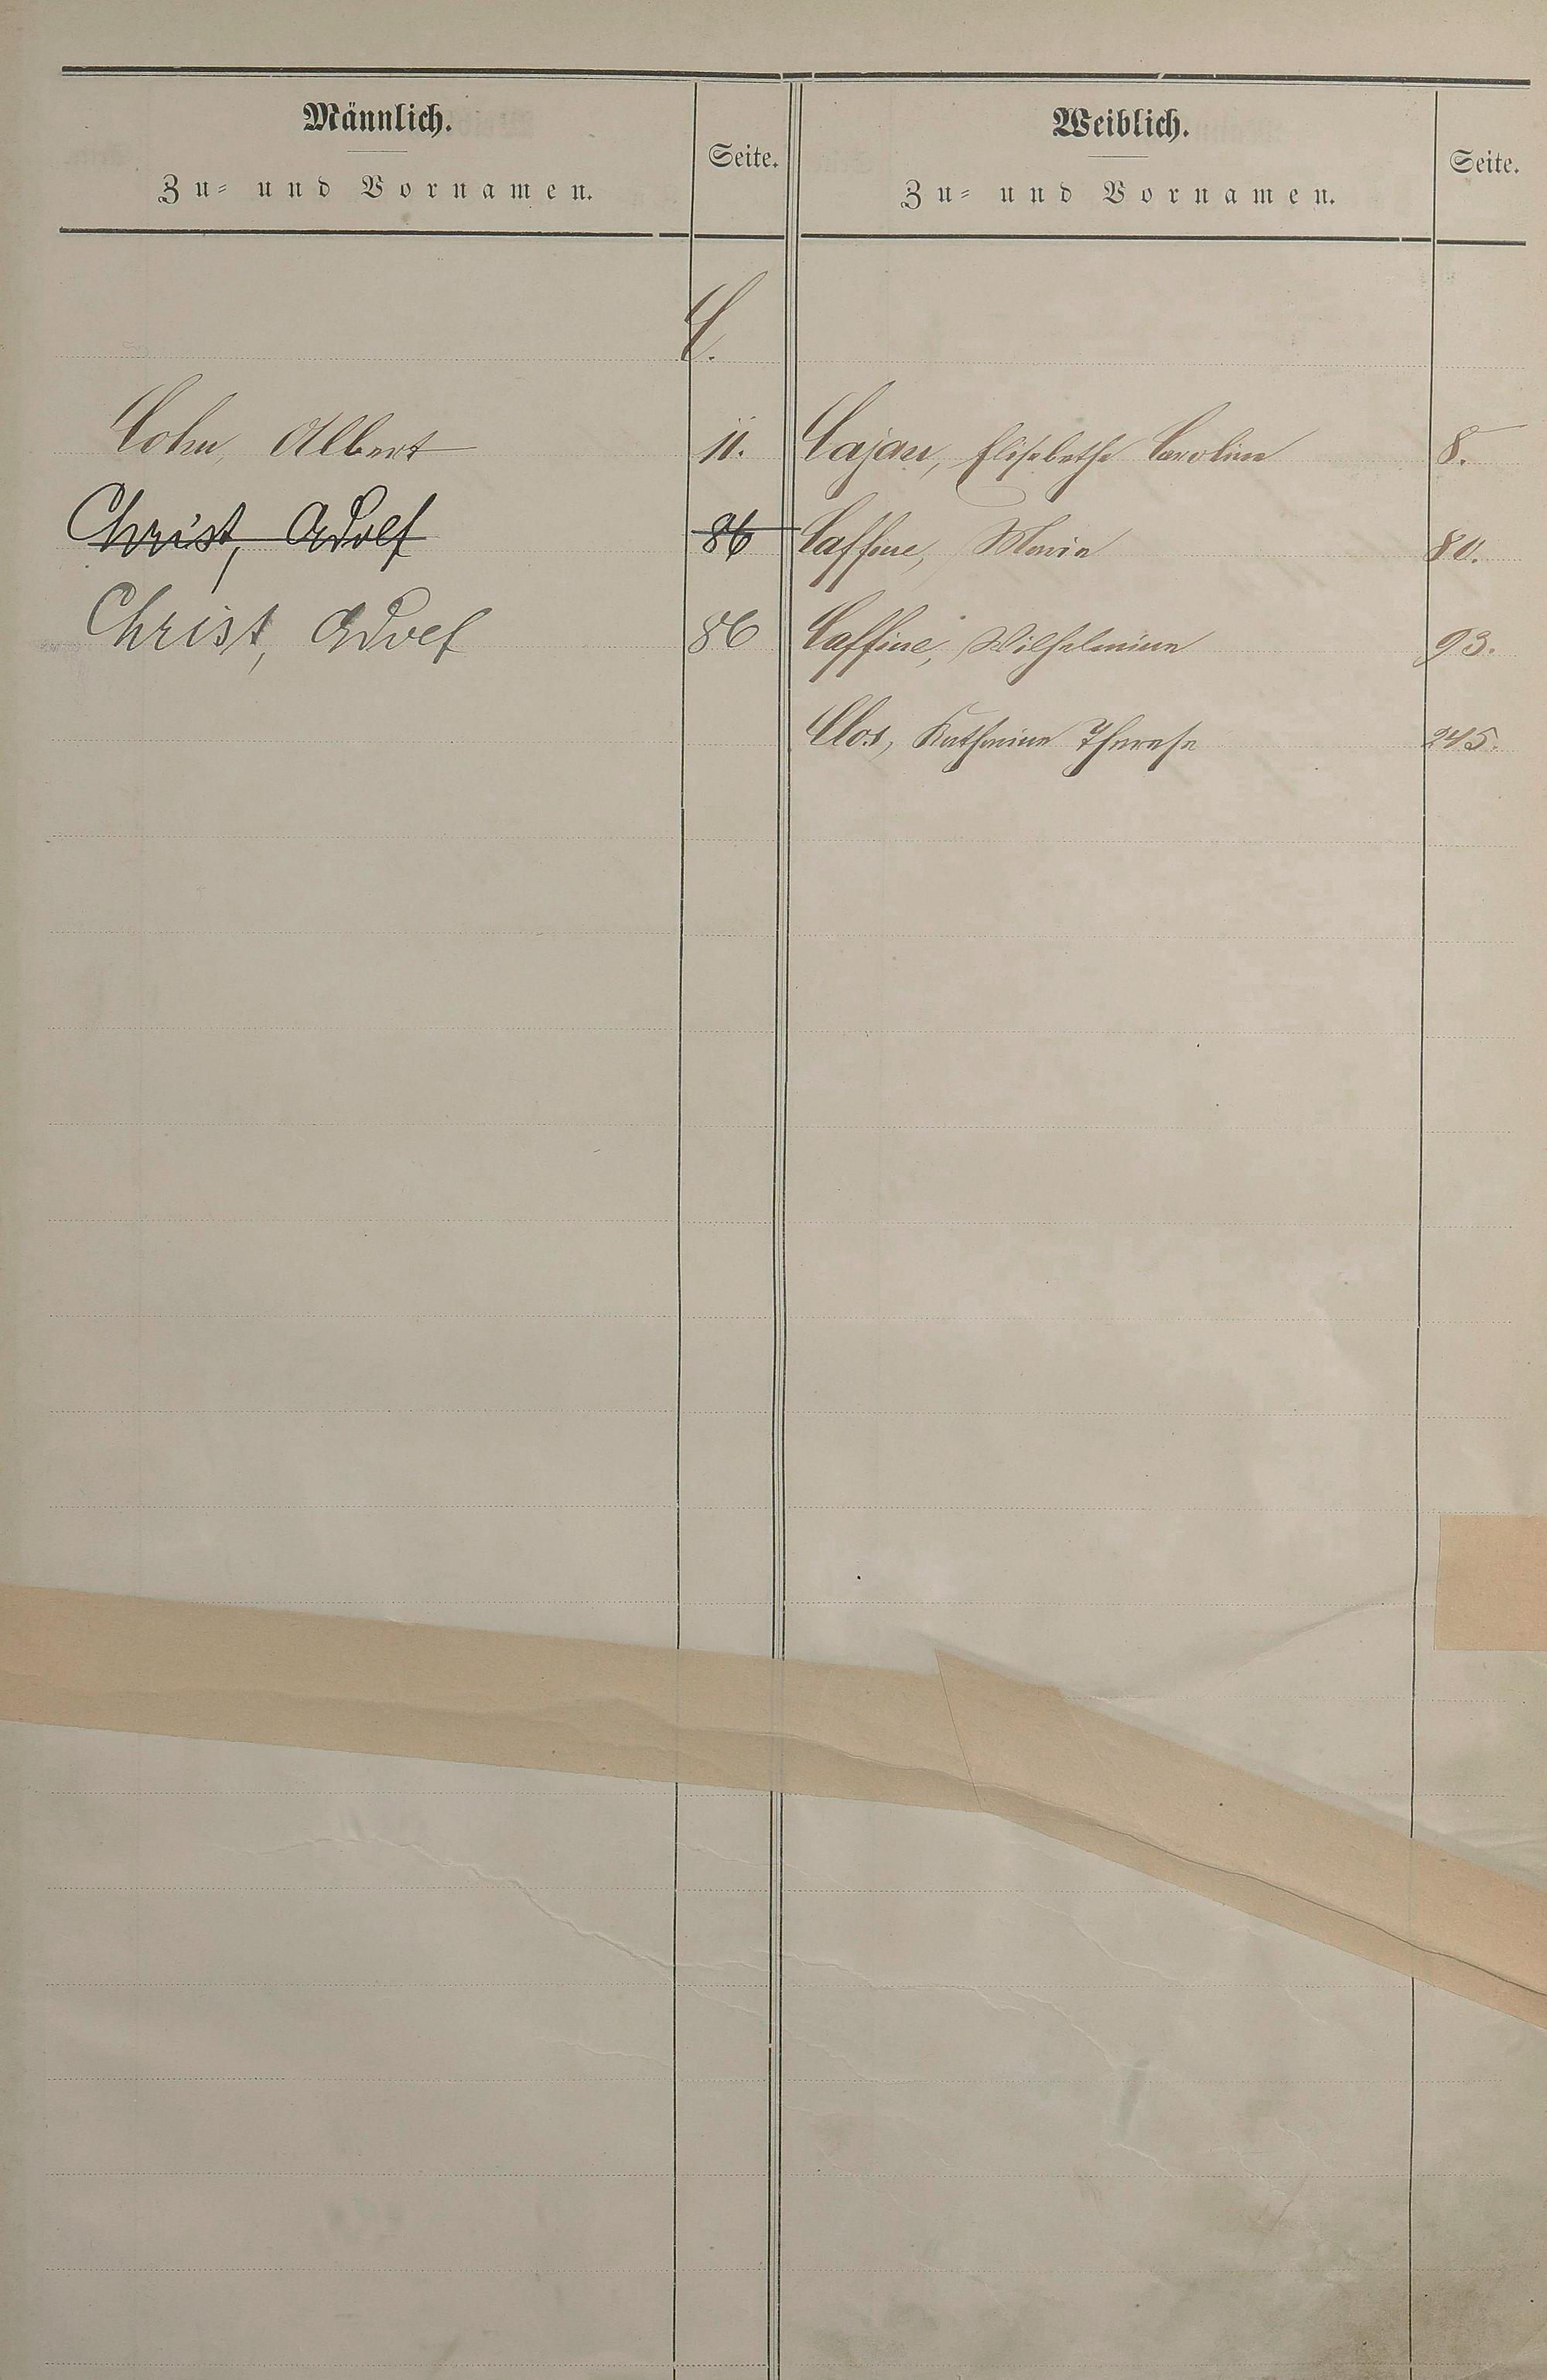 Männlich.
Zu- und Vornamen.
Seite.
Weiblich.
Zu- und Vornamen.
Seite.
C.
Cohn, Albert 11.
Christ, Adolf 86
Christ, Adolf 86
Cajar, Elisabetha Caroline 8.
Caffine, Maria 80.
Caffine, Wilhelmine 93.
Clos, Katharina Therese 245.